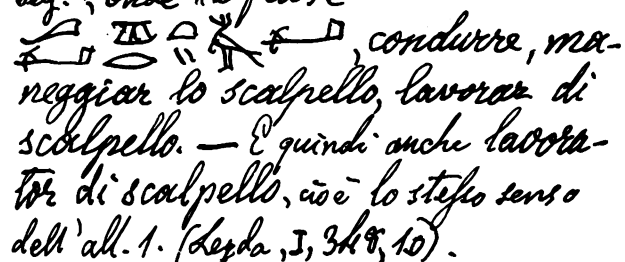 condurre, ma-
neggiar lo scalpello, lavorar di
scalpello. — E quindi anche lavora-
tor di scalpello, cioè lo stesso senso
dell'all. 1. (Leyda, I, 348, 10).